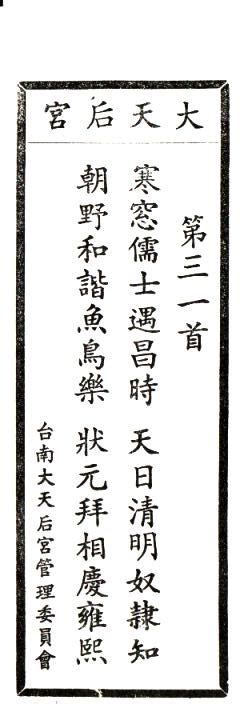 大天后宮
第三一首
寒窓儒士遇昌時　天日清明奴隸知
朝野和諧魚鳥樂　狀元拜相慶雍熙
台南大天后宮管理委員會